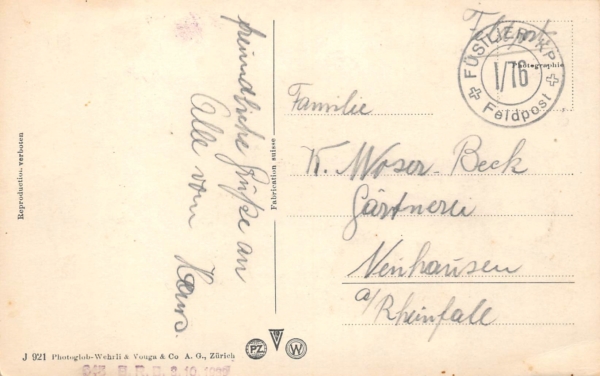 Reproduction verboten
freundliche Grüße an
Alle vom Hans.
Fabrication suisse
Feldpost
FÜSILIER KP.
I/76
Feldpost
Photographie
Familie
K. Moser-Beck
Gärtnerei
Neuhausen
a/Rheinfall
J 921 Photoglob-Wehrli & Vouga & Co A. G., Zürich
PZ
V
W